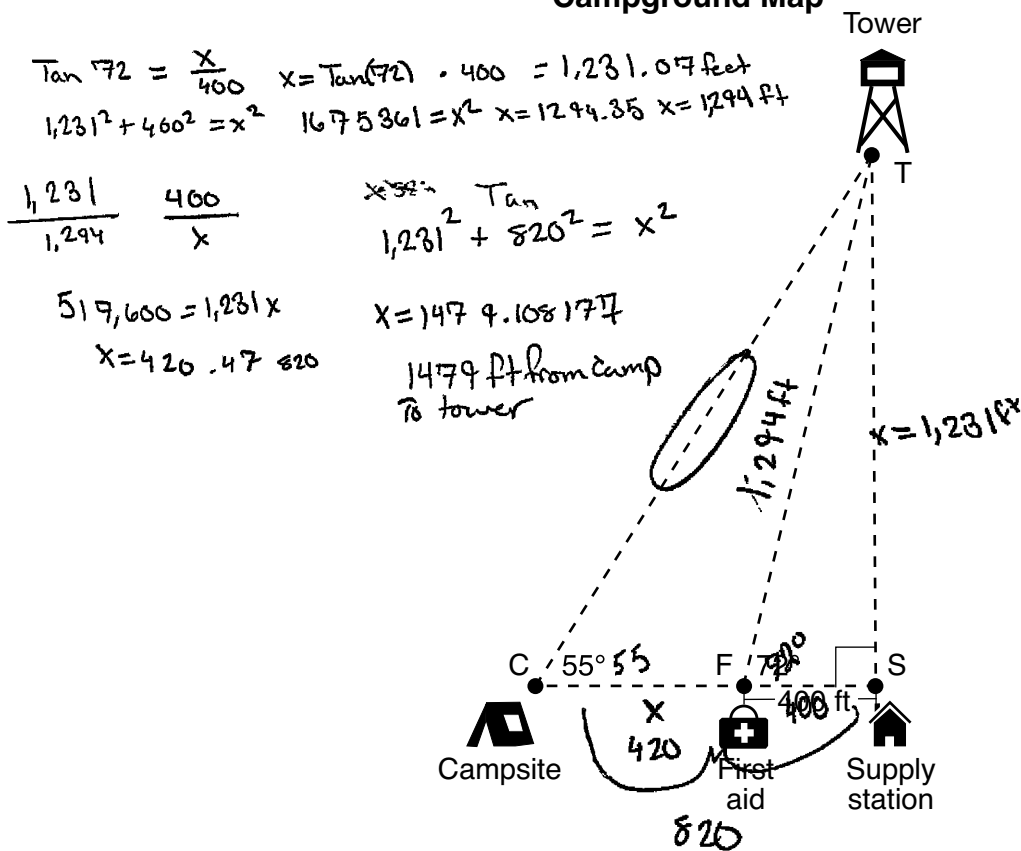 Campground Map
Tower
Tan 72 = x/400 x = Tan(72) · 400 = 1,231.07 feet
1,231² + 400² = x² 1675361 = x² x = 1294.35 x = 1,294 ft
T
1,231/1,294 400/x
Tan
1,231² + 820² = x²
517,600 = 1,231x
x = 1479.108177
x = 420.47 820
1479 ft from camp
To tower
1,294 ft
x = 1,231 ft
C 55° 55 F 72° S
400 ft
400
x
420
Campsite
First
aid
Supply
station
820